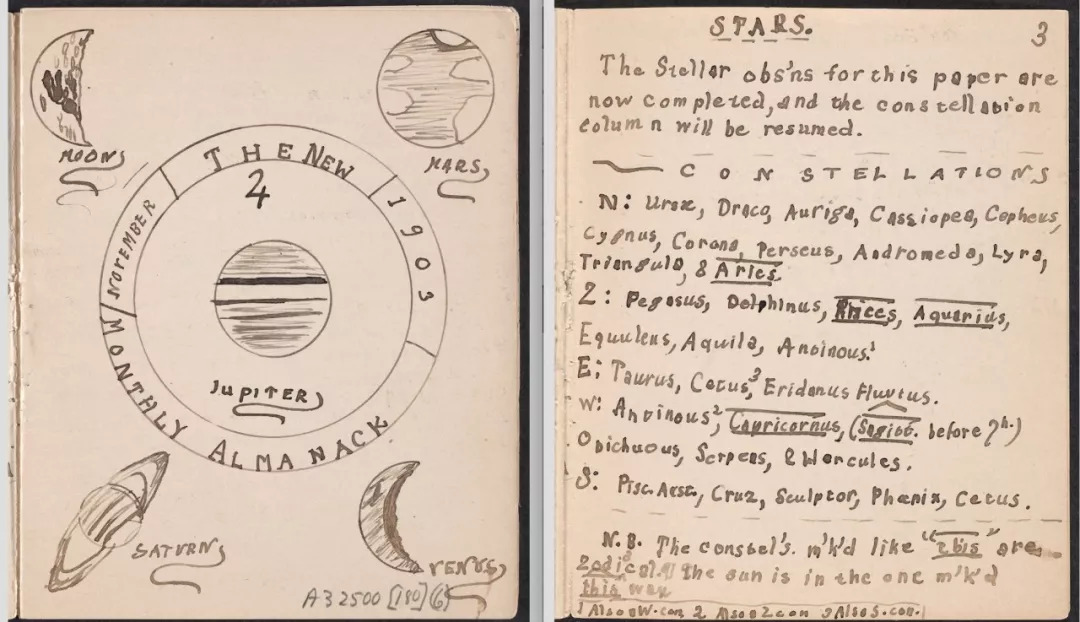 MOON
MARS
THE NEW
1903
♃
NOVEMBER
NOW
MONTHLY ALMANACK
JUPITER
SATURN
VENUS
A32500 [180] (6)
STARS.
3
The Stellar obs'ns for this paper are
now completed, and the constellation
column will be resumed.
CONSTELLATIONS
N: Ursæ, Draco, Auriga, Cassiopea, Cepheus,
Cygnus, Corona, Perseus, Andromeda, Lyra,
Triangula, & Aries.
Z: Pegasus, Delphinus, Aquarius,
Equuleus, Aquila, Antinous.¹
E: Taurus, Cetus,³ Eridanus Fluvius.
W: Antinous², Capricornus, (Sagitt. before 7h.)
Ophichuous, Serpens, & Hercules.
S: Pisc. Aust., Cruz, Sculptor, Phœnix, Cetus.
N.B. The constel's. m'k'd like "this" are
Zodical. The sun is in the one m'k'd
this way
1 Also W. con. 2 Also Z con 3 Also S. con.